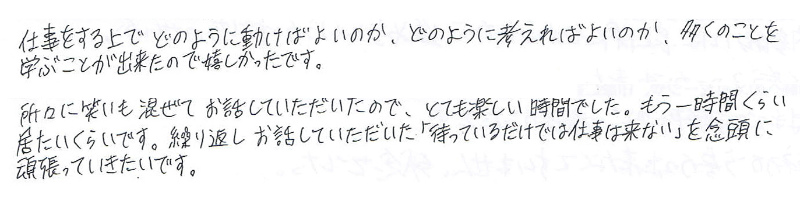 仕事をする上でどのように動けばよいのか、どのように考えればよいのか、多くのことを
学ぶことが出来たので嬉しかったです。
所々に笑いも混ぜてお話していただいたので、とても楽しい時間でした。もう一時間くらい
居たいくらいです。繰り返しお話していただいた「待っているだけでは仕事は来ない」を念頭に
頑張っていきたいです。